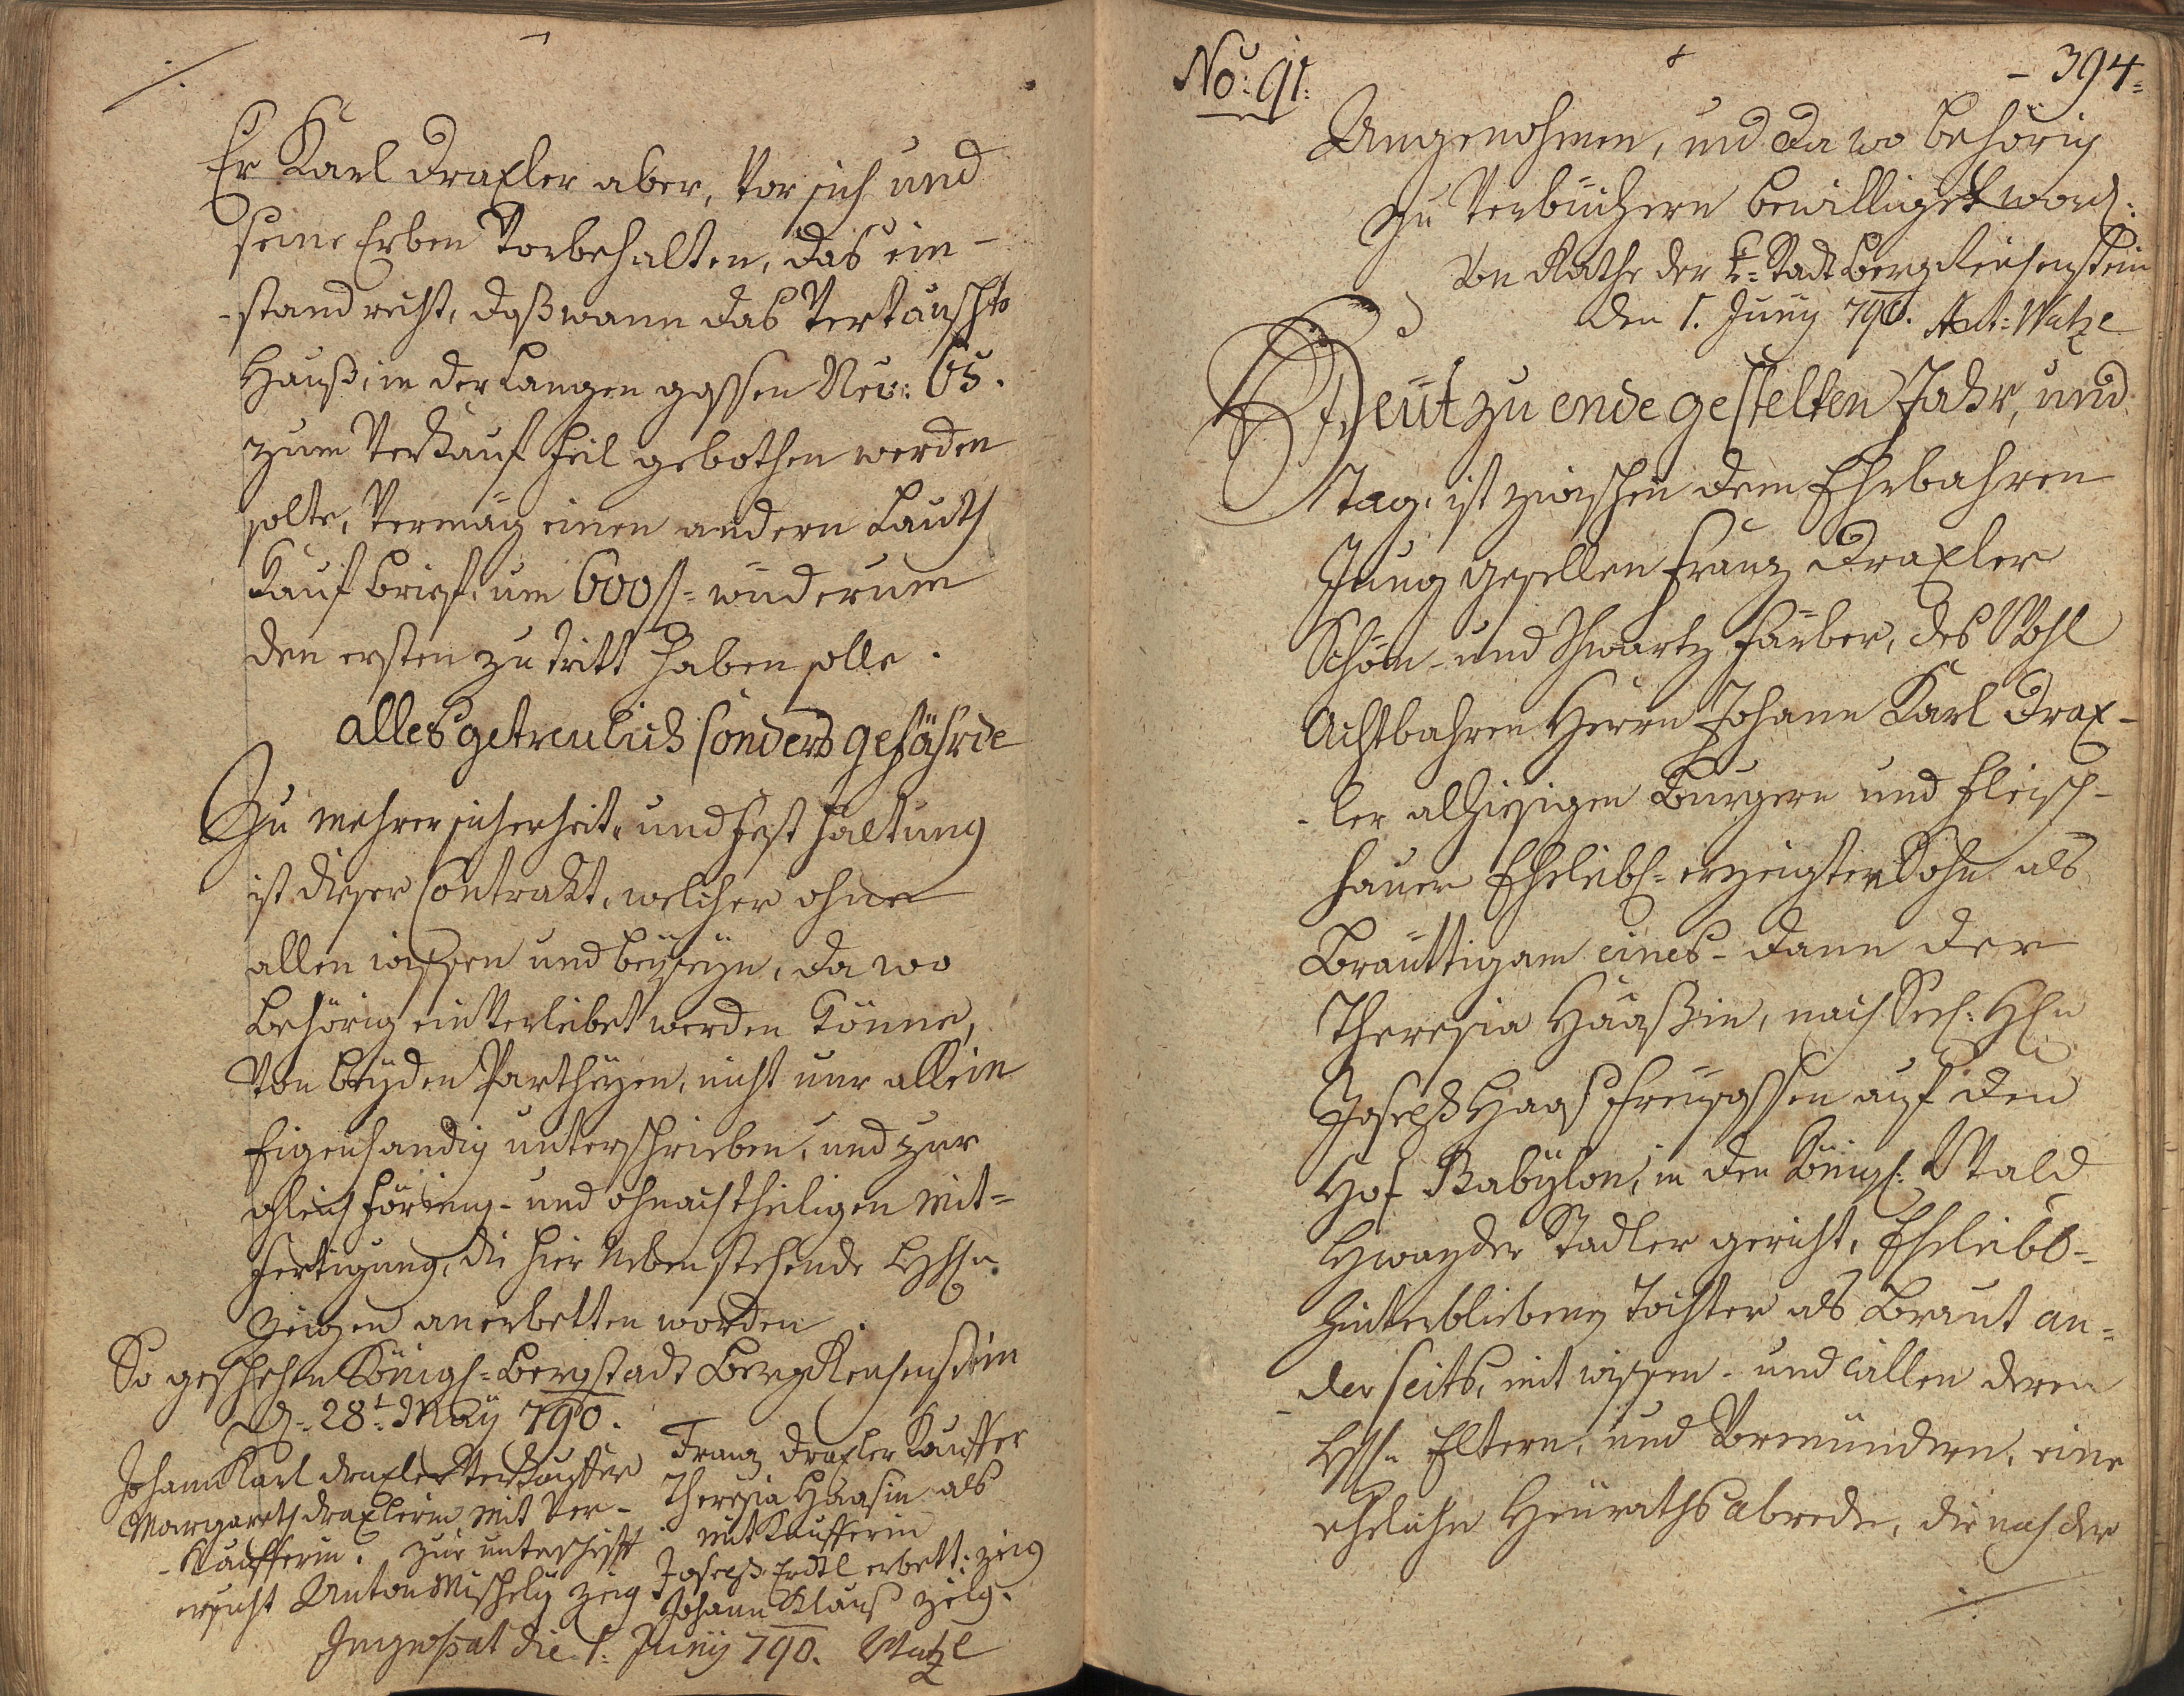 Er Karl Draxler aber, vor sich und
seine Erben vorbehalten, das ein-
-stand recht, daß wann das vertauschte
Hauß, in der Langen gassen Nro: 65.
zum verkauf feil gebothen werden
solte, vermög einen andern Lauth
Kauf brief, um 600 f= wiederum
den ersten zu tritt haben solle.
alles getreulich sonders gefährde
Zu mehrer sicherheit, und fest haltung
ist dieser Contrakt, welcher ohne
allen wissen und beyseyn, da wo
behörig ein verleibet werden könne,
von beyden Partheyen, nicht nur allein
Eigenhandig unterschrieben, und zur
gleich förmig- und ohnachtheiligen Mit=
fertigung, die hier neben stehende
Zeugen anerbetten worden.
So geschehen Königl= Bergstadt Berg Reichenstein
d. 28t May 790.
Johann Karl Draxler Verkauffer
Margareth Draxlerin mit Ver-
-kaufferin. Zur unterschrifft
ersucht Anton Mischely zeug
Franz Draxler Kauffer
Theresia Haasin als
mit Kaufferin
Joseph Erdtl erbett: zeug
Johann Klauß zeug.
Ingrossat die 1. Juny 790. Watzl
No: 91.
- 394=
Angenohmen, und da wo behörig
zu verbüchern bewilliget word:
Von Rathe der k= Stadt Bergreichenstein
den 1. Juny 790. Ant: Watzl
Heüt zu ende gestelten Jahr, und
tag, ist zwischen dem Ehrbahren
Jung gesellen Franz Draxler
Schön- und Schwartz färber, des Wohl
Achtbahren Herrn Johann Karl Drax-
-ler alhiesigen Burgern und Fleisch-
hauer Ehleibl= erzeigter Sohn als
Bräuttigam eines- dann der
Theresia Haaßin, nach Seel: H:n
Joseph Haas Freysassen auf den
Hof Babylon, in den Königl: Wald
Hwozder Stadler gericht, Ehleibl-
hinterbliebene Tochter als Braut an-
-derseits, mit wissen- und willen deren
Eltern, und Vormündern, eine
eheliche Heürathsabrede, die nach der